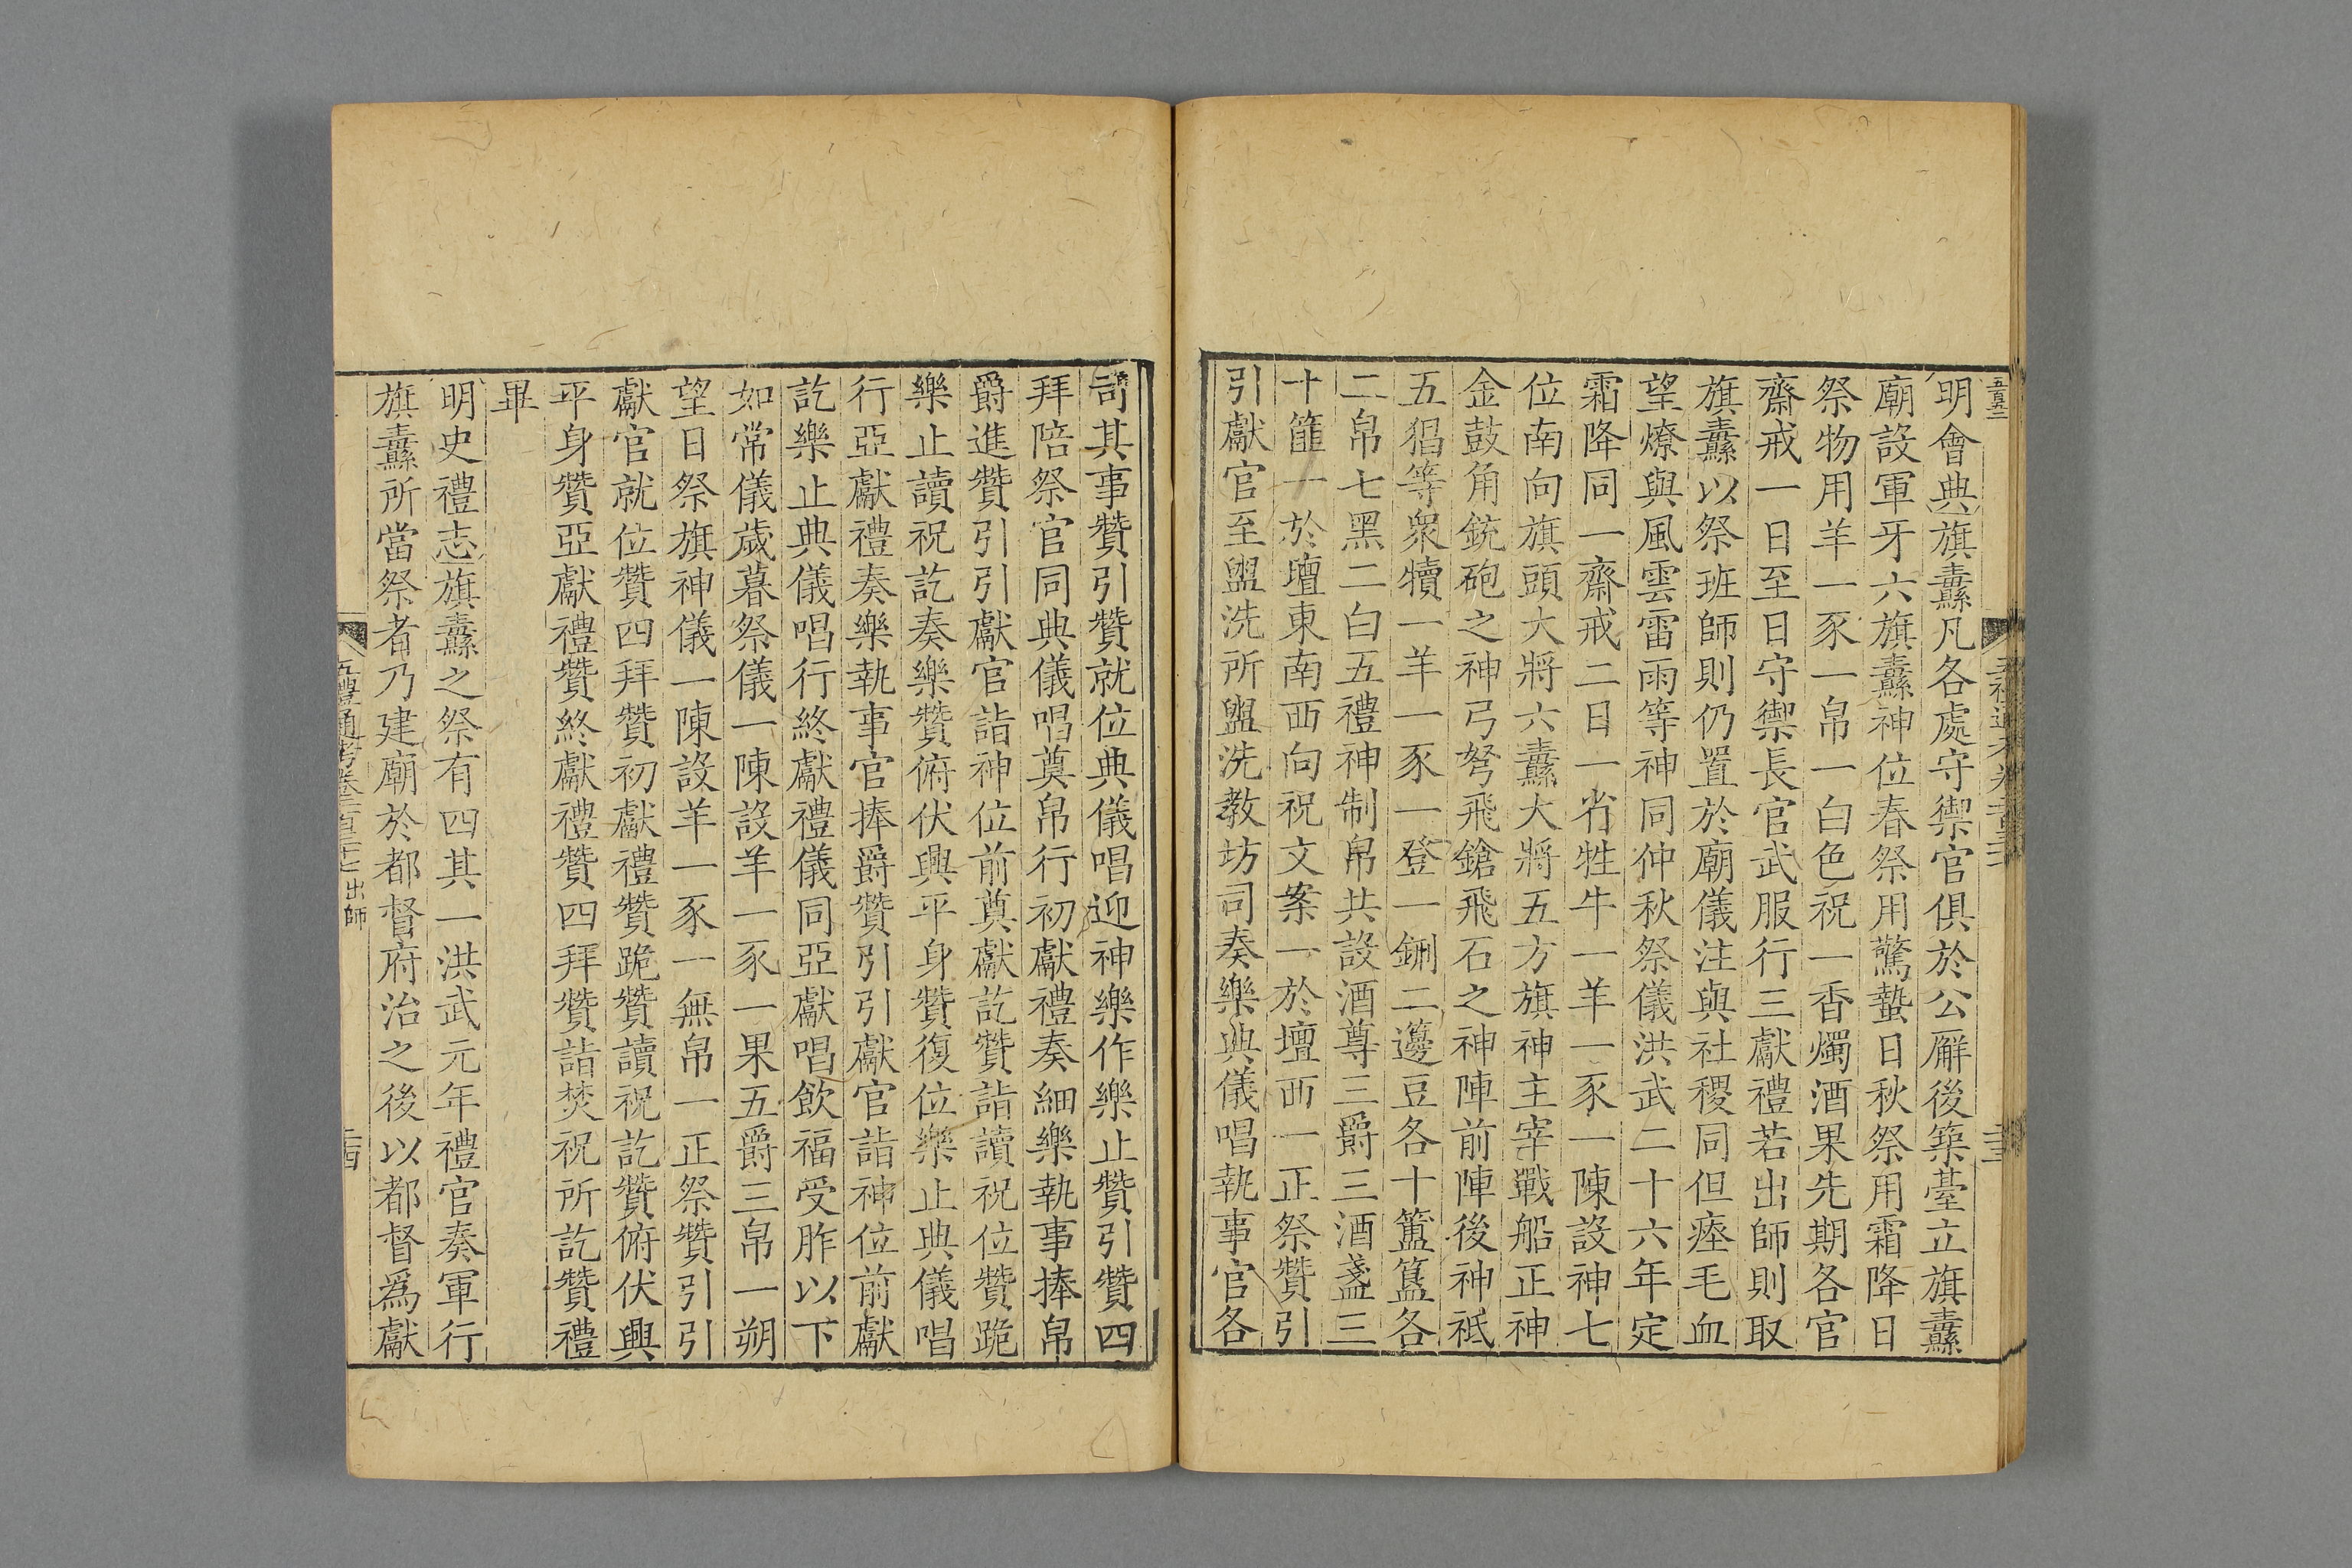 明會典旗纛凡各處守禦官俱於公廨後築臺立旗纛
廟設軍牙六旗纛神位春祭用驚蟄日秋祭用霜降日
祭物用羊一豕一帛一白色祝一香燭酒果先期各官
齋戒一日至日守禦長官武服行三獻禮若出師則取
旗纛以祭班師則仍置於廟儀注與社稷同但瘞毛血
望燎與風雲雷雨等神同仲秋祭儀洪武二十六年定
霜降同一齋戒二日一省牲牛一羊一豕一陳設神七
位南向旗頭大將六纛大將五方旗神主宰戰船正神
金鼓角銃砲之神弓弩飛鎗飛石之神陣前陣後神祇
五猖等衆犢一羊一豕一登一鉶二籩豆各十簠簋各
二帛七黑二白五禮神制帛共設酒尊三爵三酒盞三
十篚一於壇東南西向祝文案一於壇西一正祭贊引
引獻官至盥洗所盥洗教坊司奏樂典儀唱執事官各
司其事贊引贊就位典儀唱迎神樂作樂止贊引贊四
拜陪祭官同典儀唱奠帛行初獻禮奏細樂執事捧帛
爵進贊引引獻官詣神位前奠獻訖贊詣讀祝位贊跪
樂止讀祝訖奏樂贊俯伏興平身贊復位樂止典儀唱
行亞獻禮奏樂執事官捧爵贊引引獻官詣神位前獻
訖樂止典儀唱行終獻禮儀同亞獻唱飲福受胙以下
如常儀歲暮祭儀一陳設羊一豕一果五爵三帛一朔
望日祭旗神儀一陳設羊一豕一無帛一正祭贊引引
獻官就位贊四拜贊初獻禮贊跪贊讀祝訖贊俯伏興
平身贊亞獻禮贊終獻禮贊四拜贊詣焚祝所訖贊禮
畢
明史禮志旗纛之祭有四其一洪武元年禮官奏軍行
旗纛所當祭者乃建廟於都督府治之後以都督爲獻
五禮通考卷二百三十七 出師
二四